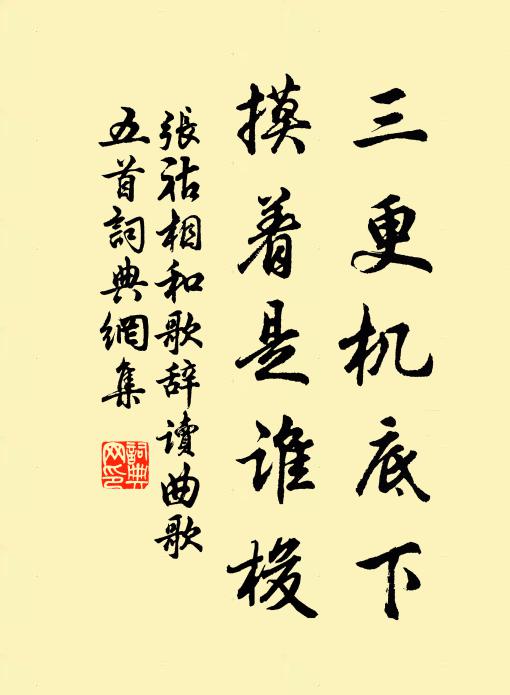 三更机底下
摸着是谁梭
張祜相和歌辞讀曲歌
五首詞典網集
詞典
网印